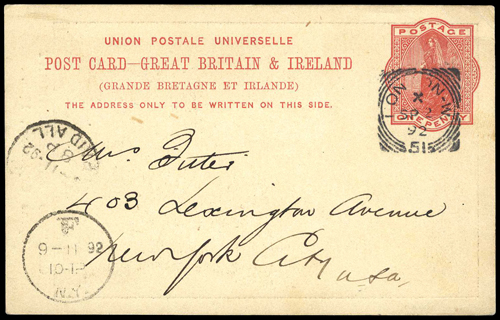 UNION POSTALE UNIVERSELLE
POST CARD—GREAT BRITAIN & IRELAND
(GRANDE BRETAGNE ET IRLANDE)
THE ADDRESS ONLY TO BE WRITTEN ON THIS SIDE.
POSTAGE
ONE PENNY
LONDON-W
X
92
51
PAID ALL
92
6-11 92
N.Y.
403 Lexington Avenue
New York City
USA